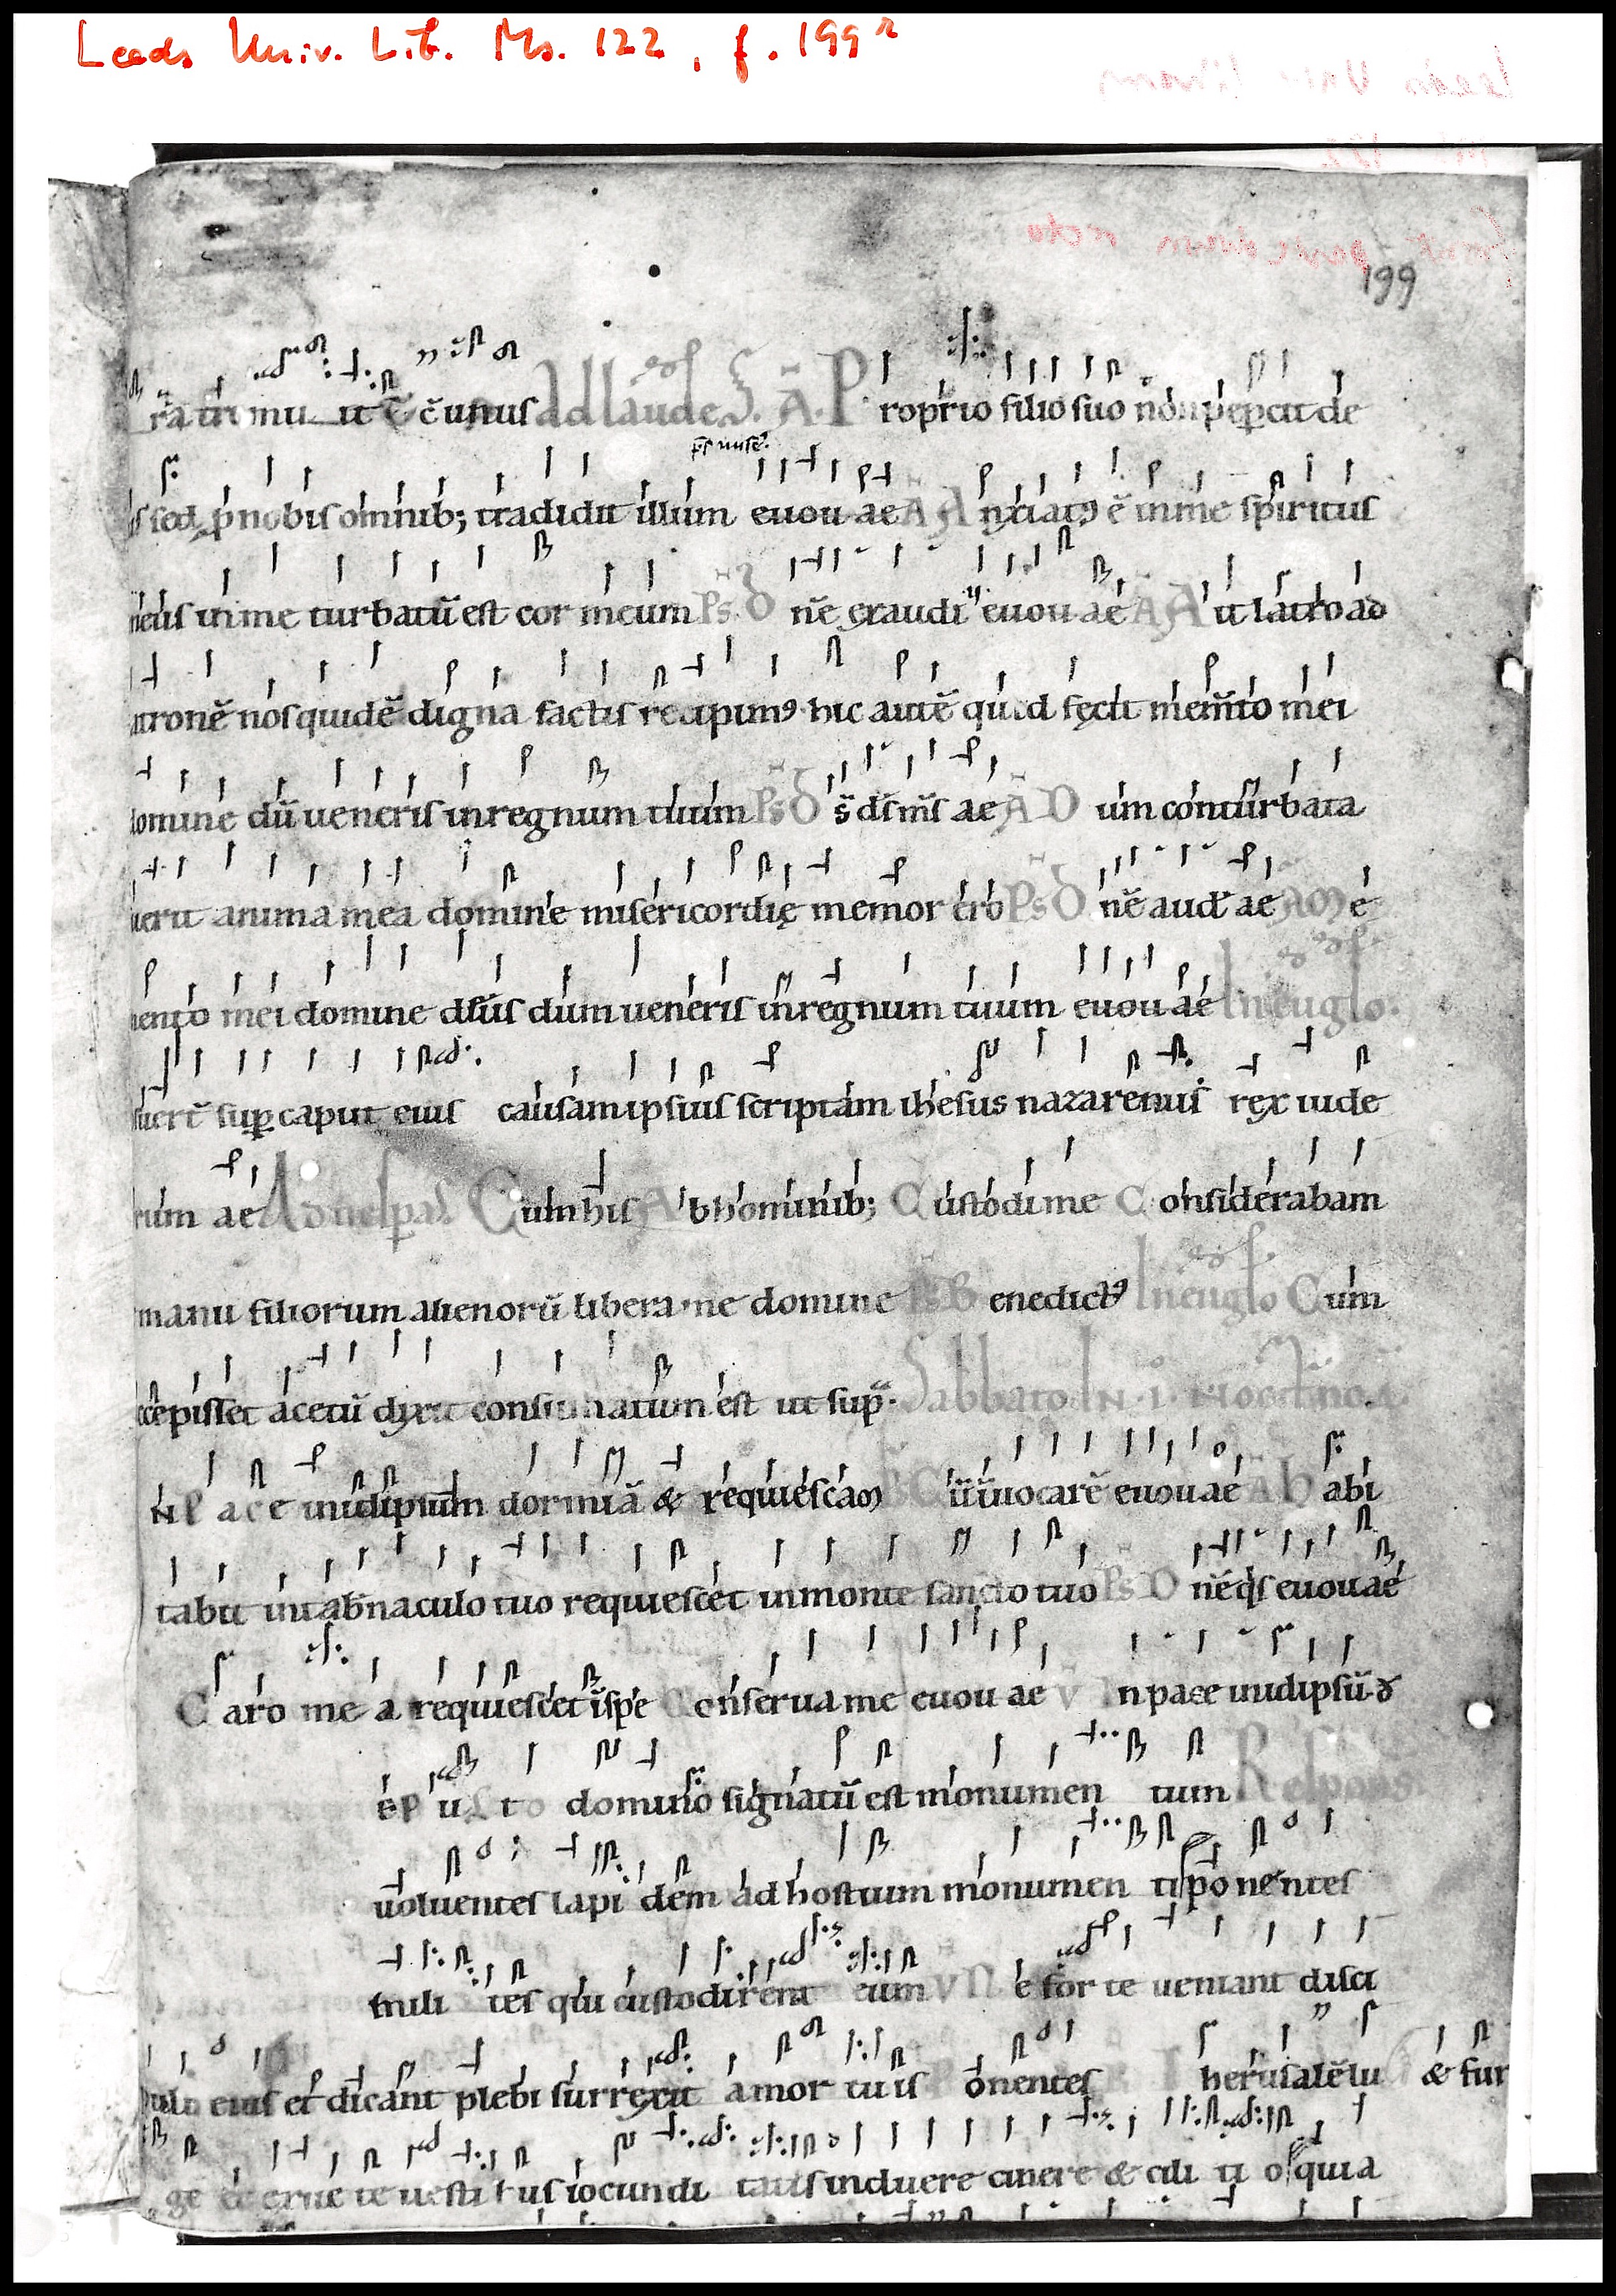 Leeds Univ. Lib. Ms. 122, f. 199r
199
unus Ad laude S. A. Proprio filio suo non pepcit de
sed p nobis omnib; tradidit illum euou ae A Anxiatꝯ ē in me spiritus
meus in me turbatū est cor meum Ps. D nē exaudi euou ae A A it latro ad
latronē nos quidē digna factis recipimꝯ hic autē quid fecit mem̄to mei
domine dū ueneris in regnum tuum Ps D s̄ ds ms ae A D um conturbata
fuerit anima mea domine misericordię memor ero Ps D nē aud ae A M e
mento mei domine dūs dum ueneris in regnum tuum euou ae In euglo.
suerē sup caput eius causam ipsius scriptam ihesus nazarenus rex iude
orum ae Ad uespas Cum his A b hominib; Custodi me Considerabam
manu filiorum alienorū libera me domine Ps B enedictꝯ In euglo Cum
accepisset acetū dixit consummatum est ut sup̄. Sabbato IN .I. Noct̄no. A.
IN pace in idipsum dormiā & requiescam Ps C ū inuocarē euou ae A H abi
tabit in tab̄naculo tuo requiescet in monte sancto tuo Ps D nē q̇s euou ae
Caro me a requiescet īspe Conserua me euou ae V In pace in idipsū d
ep ul to domino signatū est monumen tum Respons
uoluentes lapi dem ad hostium monumen ti ponentes
mili tes qui custodirent eum V N e for te ueniant disci
puli eius et dicant plebi surrexit a mor tuis P onentes R I herusalē lu & sur
ge et exue te uesti bus iocundi tatis induere cinere & cili ti o quia